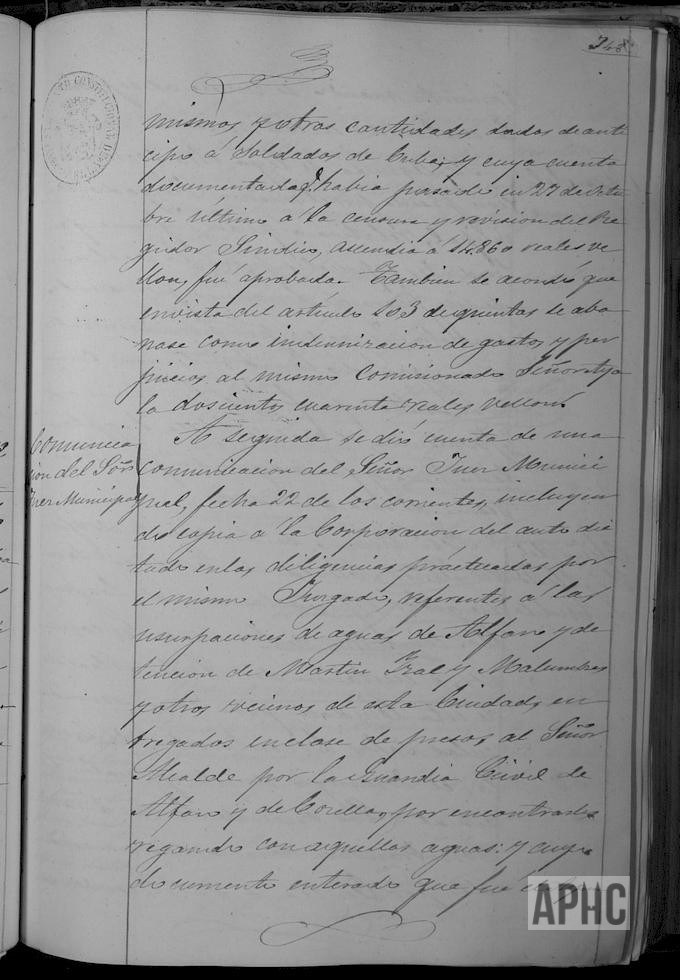 348
mismos y otras cantidades dadas de anti
cipo á Soldados de Cuba, y cuya cuenta
documentada q.e había pasado en 27 de Octu
bre último a la censura y revision del Re
gidor Síndico, ascendia á 14.860 reales ve
llon, fué aprobada. Tambien se acordó que
en vista del artículo 103 de quintas se abo
nase como indemnizacion de gastos y per
juicios al mismo Comisionado Señor
la doscientos cuarenta reales vellon.
Comunica
cion del Sor
Juez Municipal
A seguida se dió cuenta de una
comunicacion del Señor Juez Munici
pal, fecha 22 de los corrientes, incluyen
do copia a la Corporacion del auto dic
tado en las diligencias practicadas por
el mismo Juzgado, referentes á las
usurpaciones de aguas de Alfaro y de
tencion de Martin Izal y Malumbres
y otros vecinos de esta Ciudad, en
tregados en clase de presos al Señor
Alcalde por la Guardia Civil de
Alfaro y de Corella, por encontrarles
regando con aquellas aguas: y cuyo
documento enterado que fué
APHC